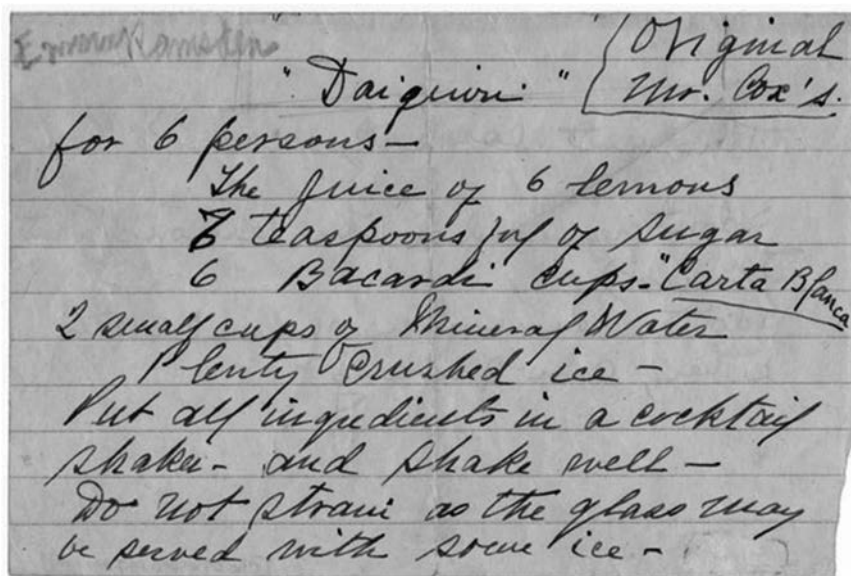 "Daiguiri" Original
Mr. Cox's.
for 6 persons—
The juice of 6 lemons
teaspoons ful of sugar
6 Bacardi cups—"Carta Blanca
2 small cups of Mineral Water
Plenty crushed ice—
Put all ingredients in a cocktail
shaker— and shake well—
Do not strain as the glass may
be served with some ice—